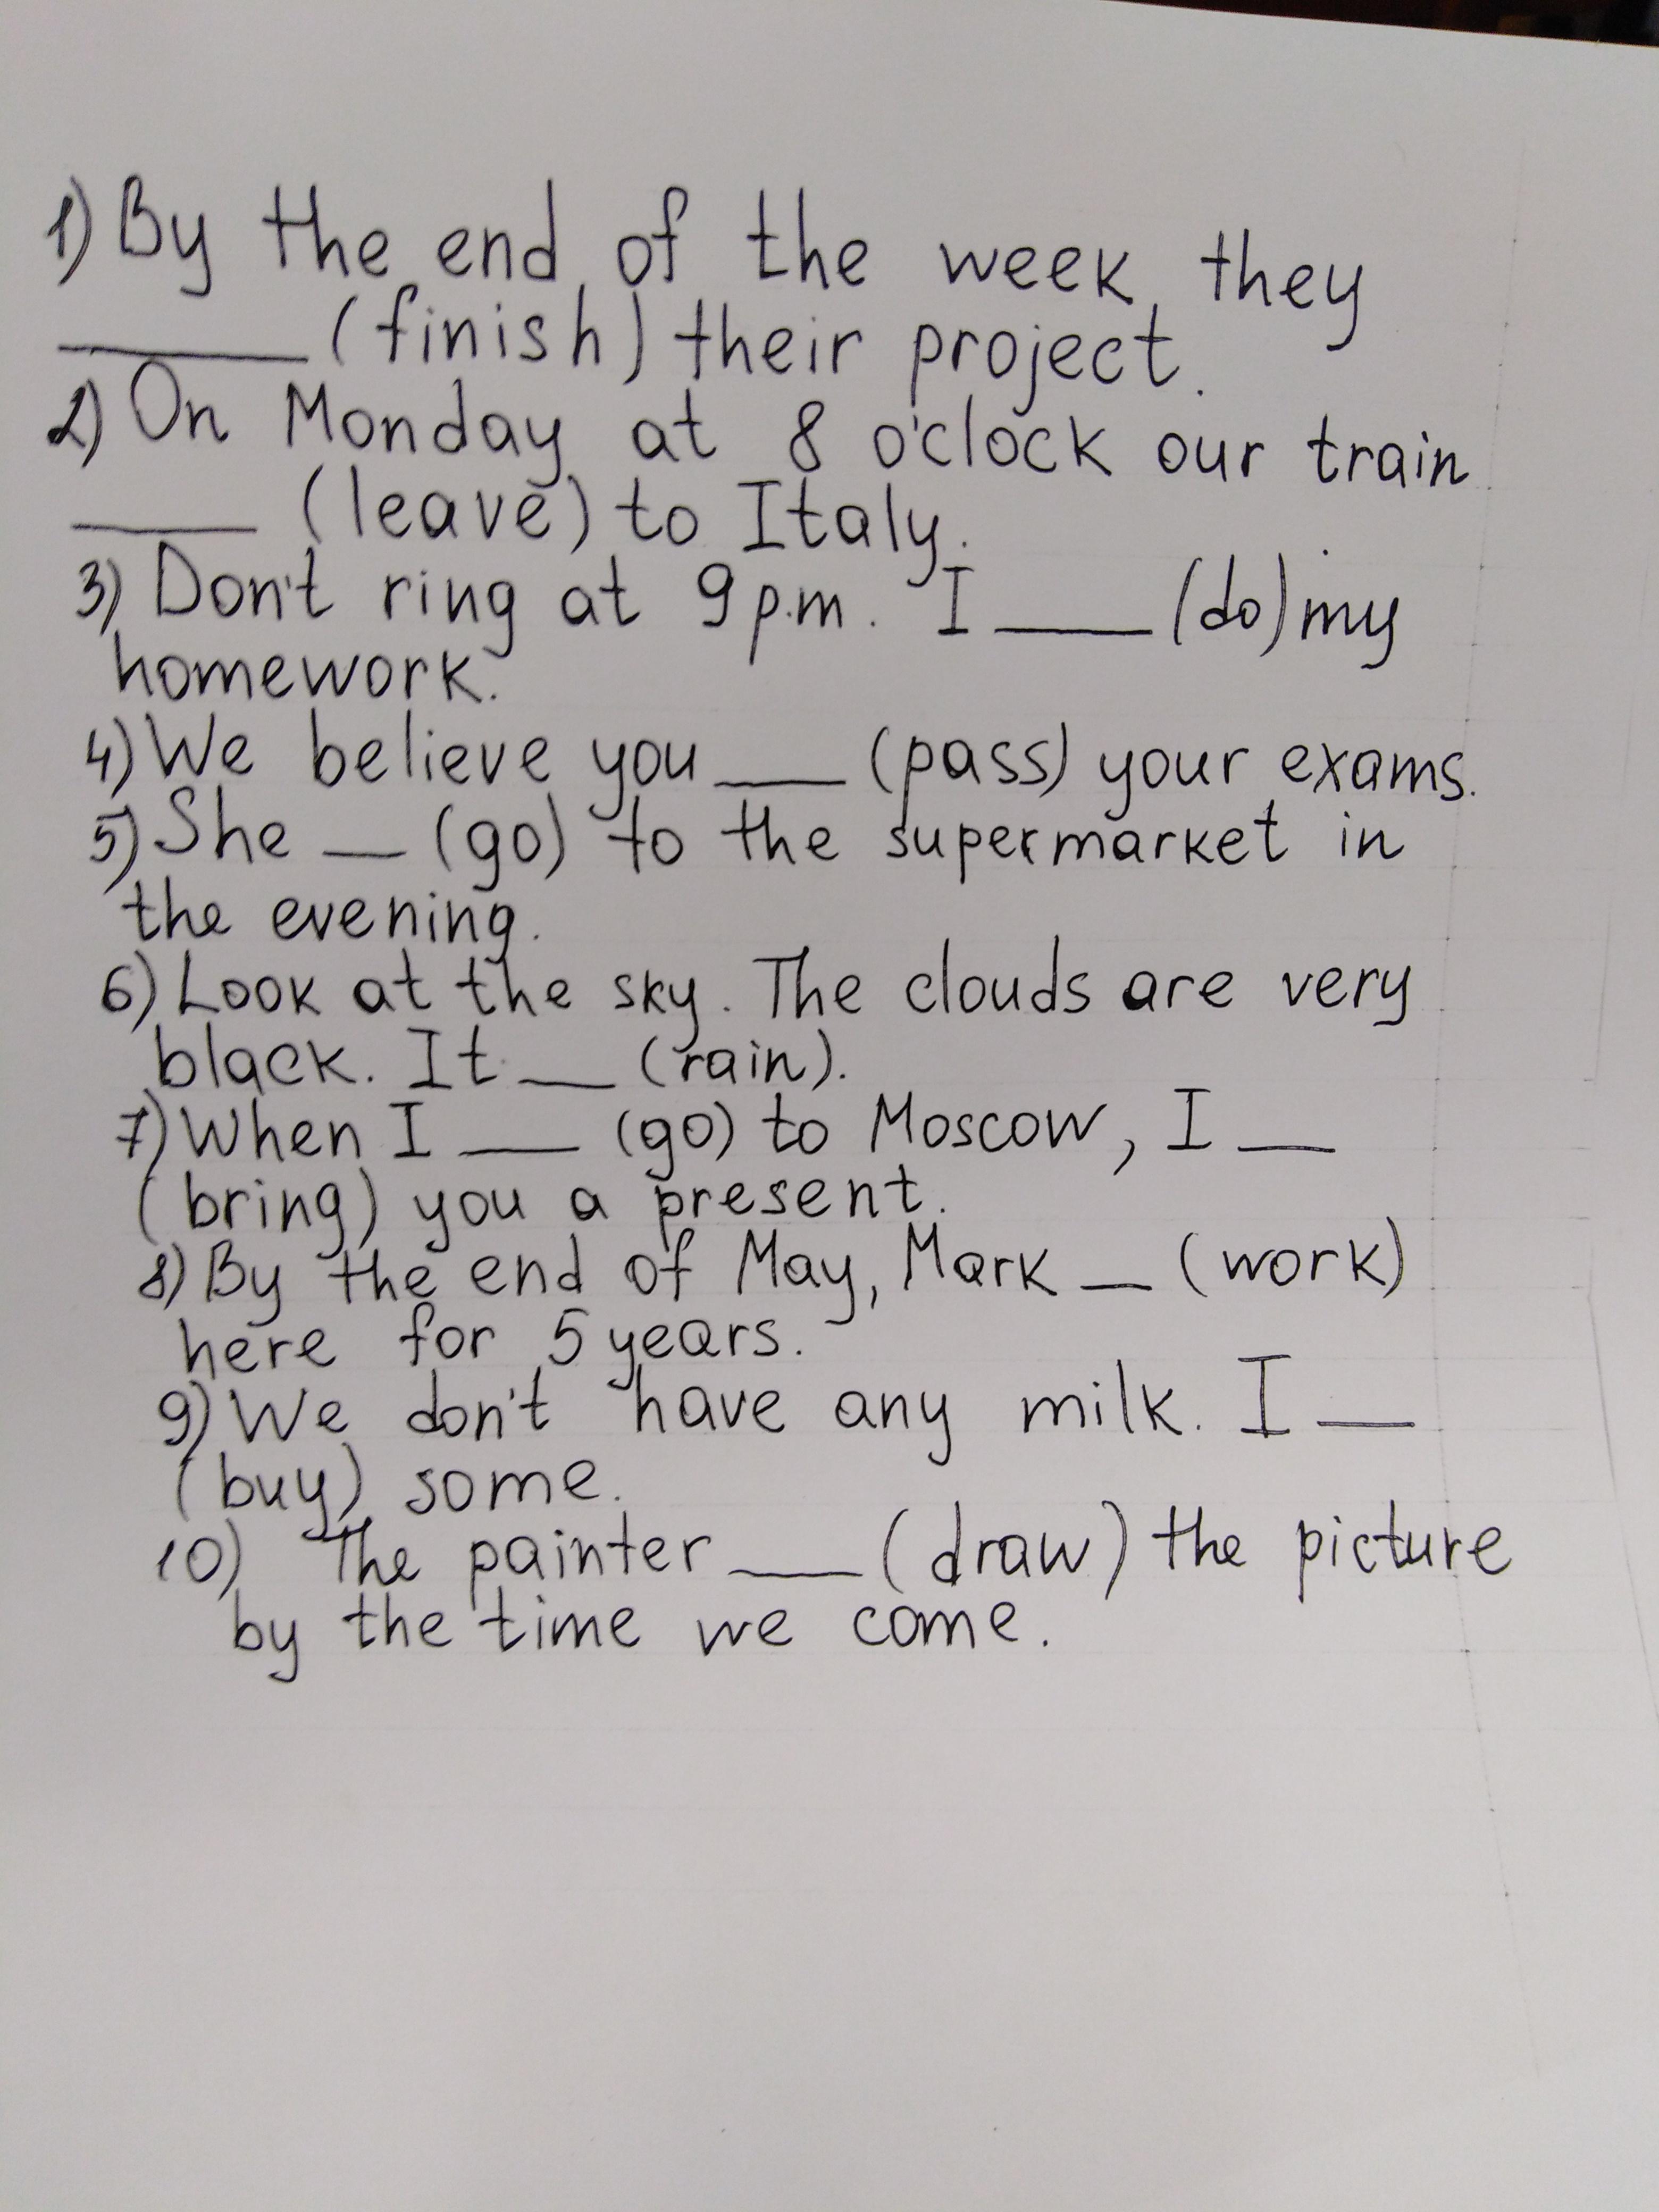 1) By the end of the week they
____ (finish) their project.
2) On Monday at 8 o'clock our train
____ (leave) to Italy.
3) Don't ring at 9 p.m. I ____ (do) my
homework.
4) We believe you ____ (pass) your exams.
5) She __ (go) to the supermarket in
the evening.
6) Look at the sky. The clouds are very
black. It __ (rain).
7) When I ___ (go) to Moscow, I __
(bring) you a present.
8) By the end of May, Mark __ (work)
here for 5 years.
9) We don't have any milk. I __
(buy) some.
10) The painter ___ (draw) the picture
by the time we come.